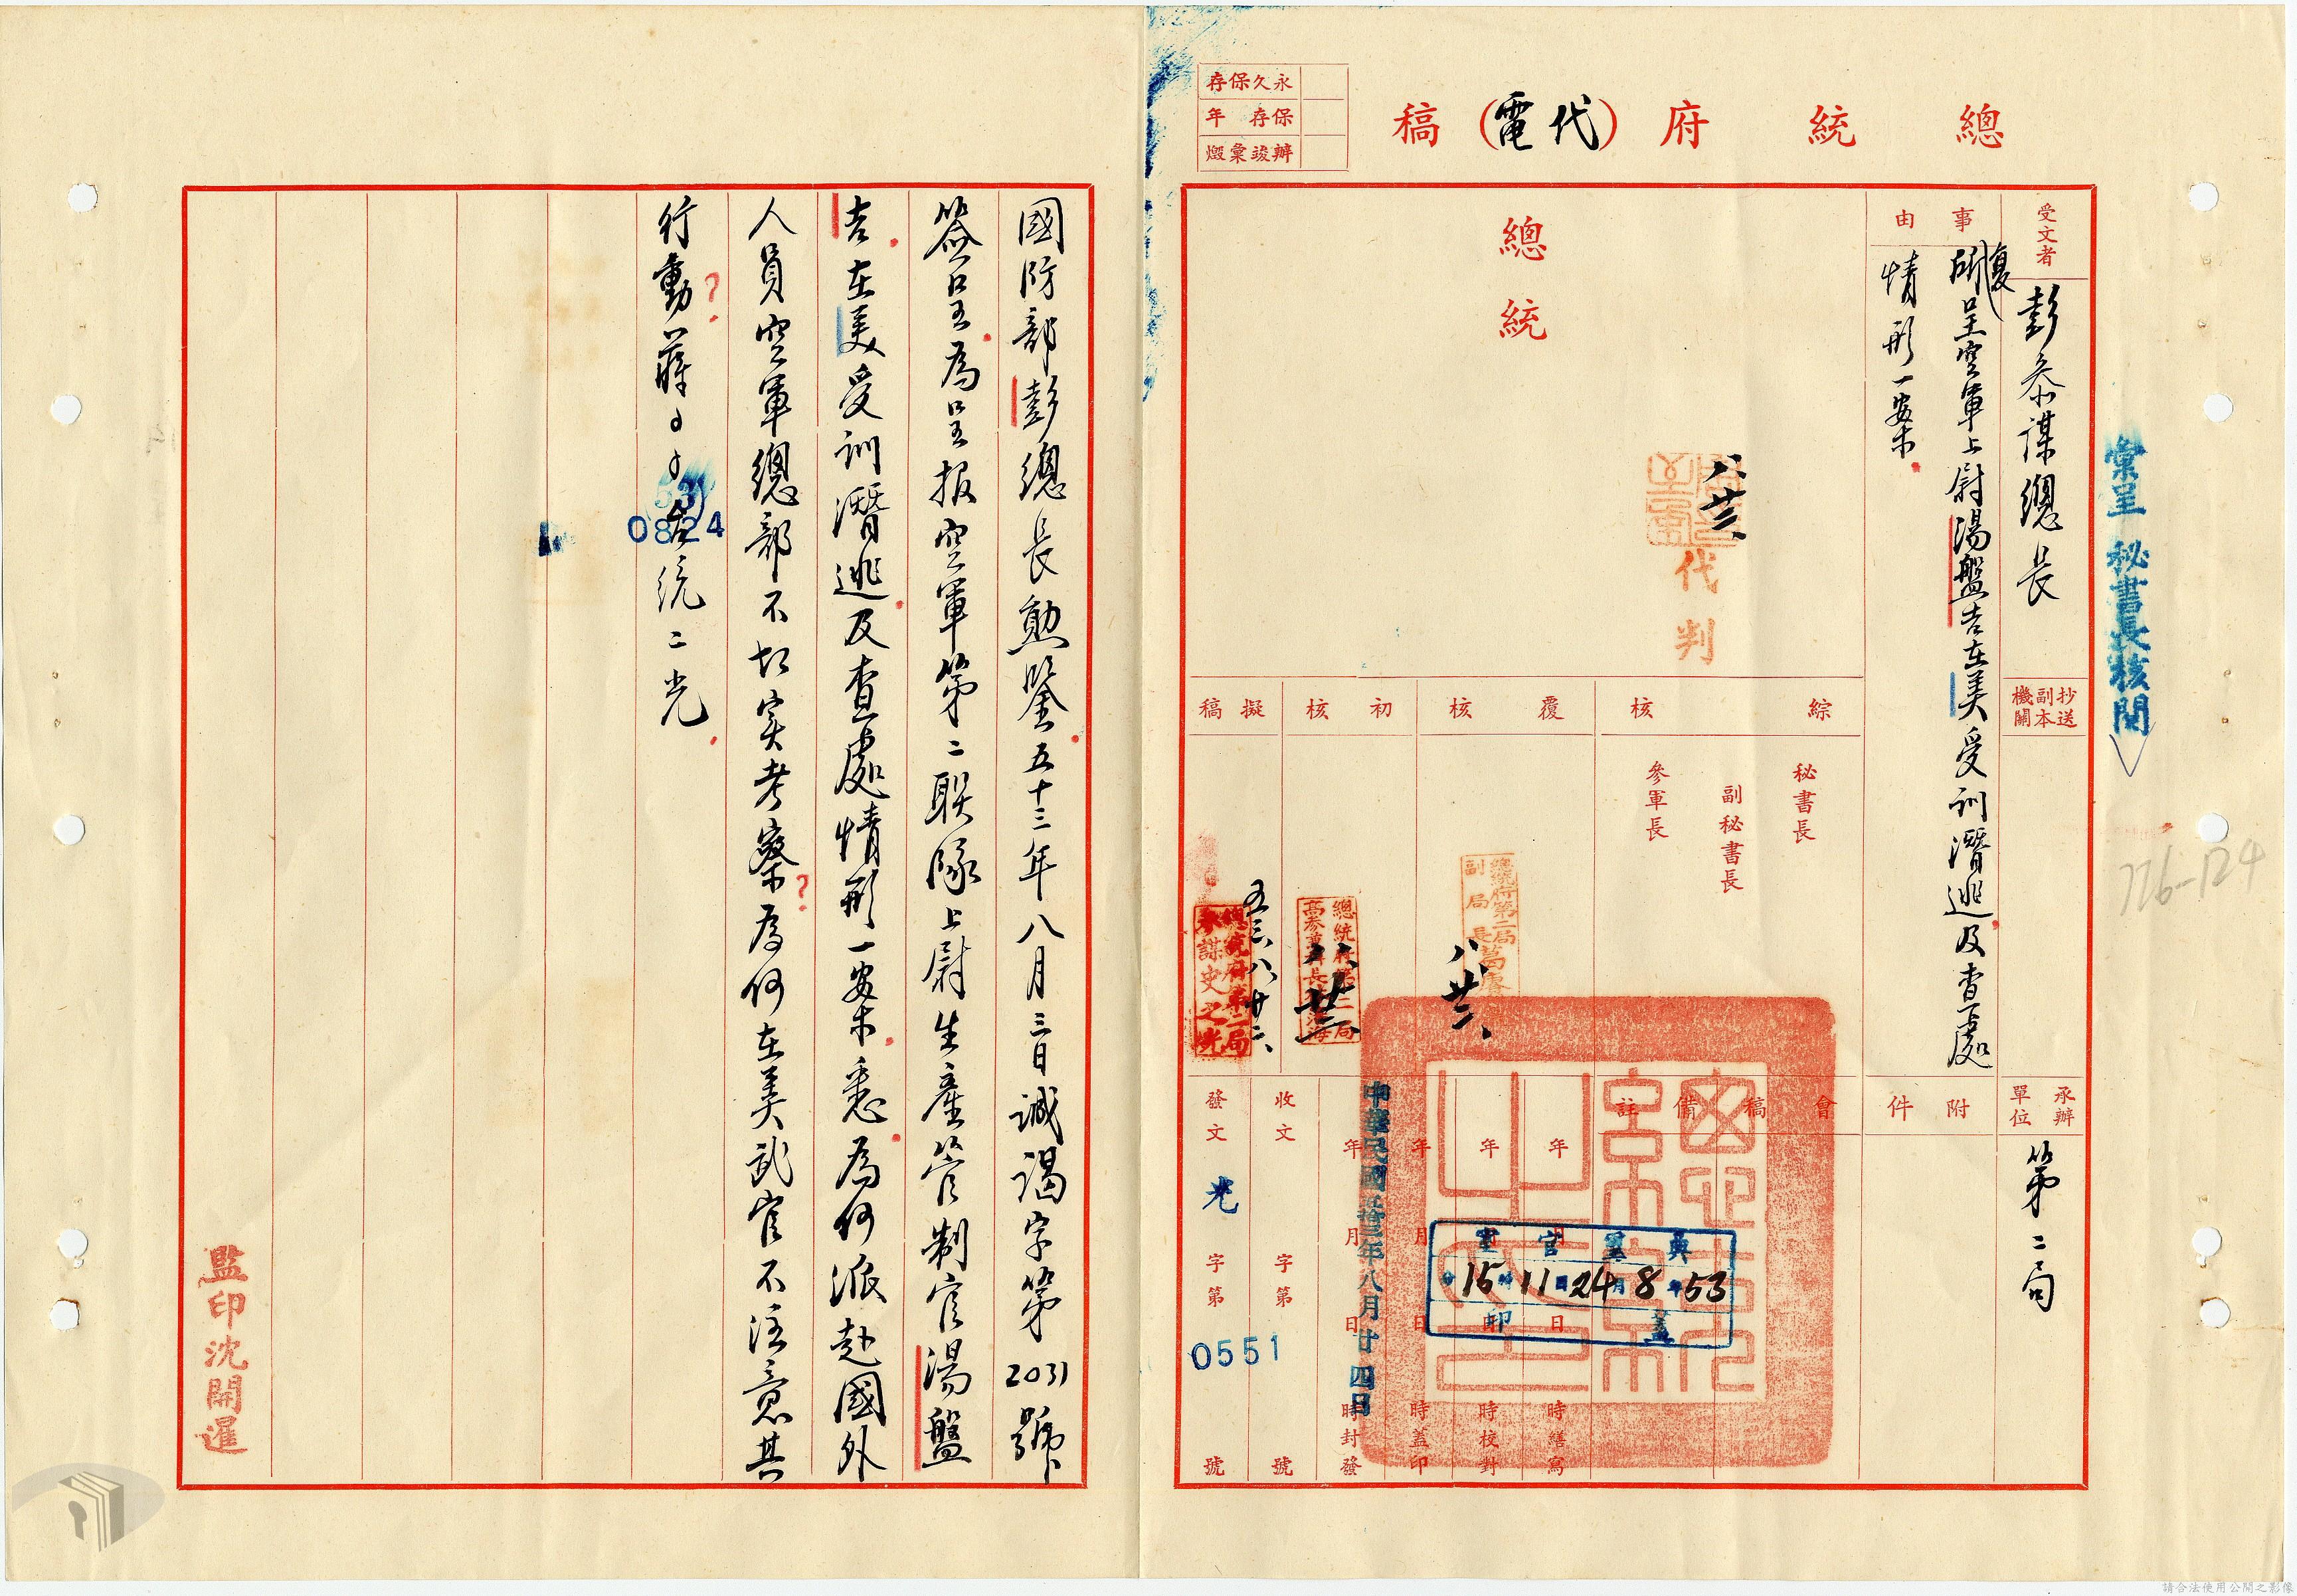 總統府（代電）稿
永久保存
保存 年
辦竣彙燬
彙呈 秘書長核閱
受文者
彭參謀總長
抄送副本機關
承辦單位
第二局
事由
復呈空軍上尉湯盤吉在美受訓潛逃及查處
情形一案
附件
總統
八 廿三
代判
綜核
覆核
初核
擬稿
秘書長
副秘書長
參軍長
總統府第二局
副局長
八 廿三
總統府第二局
總統府第二局
參謀史之光
五三、八、廿二、
會稿備註
年 月 日 時繕寫
年 月 日 時校對
年 月 日 時蓋印
年 月 日 時封發
中華民國五十三年八月廿四日
53年8月24日11時15分
蓋印
收文 字第 號
發文 光 字第 0551 號
776-124
國防部彭總長勛鑒五十三年八月三日誠謁字第2031號
簽呈為呈報空軍第二聯隊上尉生產管制官湯盤
吉在美受訓潛逃及查處情形一案悉為何派赴國外
人員空軍總部不切實考察？為何在美武官不注意其
行動？蔣
53
0824
台統二光
監印沈開暹
請合法使用公開之影像